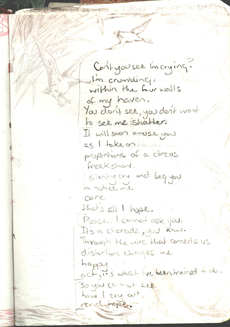 Can't you see Im crying?
I'm crumbling,
within the four walls
of my haven.
You don't see, you don't want
to see me shatter.
It will soon amuse you
as I take on
proportions of a circus
freakshow.
cry and beg you
care
that's all I hope.
Please I cannot ask you.
Its a charade, you know.
Through the wire that connects us
distortion changes me
happy
act, it's what I've been trained to do.
so you can not see
how I cry out.